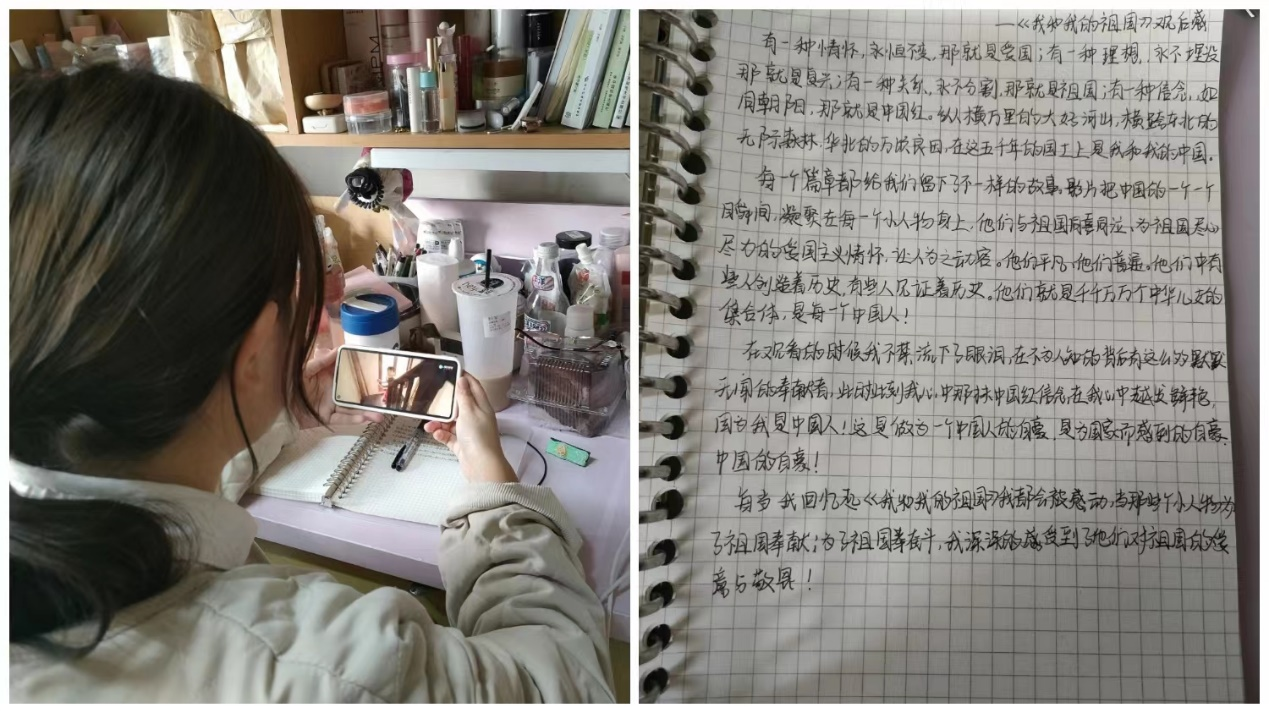 —《我和我的祖国》观后感
有一种情怀，永恒不变，那就是爱国；有一种理想，永不埋没
那就是复兴；有一种关系，永不分割，那就是祖国；有一种信念，如
同朝阳，那就是中国红。纵横万里的大好河山，横跨东北的
无际森林，华北的万顷良田，在这五千年的国土上是我和我的中国。
每一个篇章都给我们留下了不一样的故事，影片把中国的一个一个
瞬间，凝聚在每一个小人物身上，他们与祖国同喜同泣，为祖国尽心
尽力的爱国主义情怀，让人为之动容。他们平凡，他们普通。他们中有
些人创造着历史，有些人见证着历史。他们就是千千万万个中华儿女的
集合体，是每一个中国人！
在观看的时候我不禁流下了眼泪，在不为人知的背后有这么的默默
无闻的奉献者，此时此刻我心中那抹中国红信念，在我心中越发鲜艳，
因为我是中国人！这是做为一个中国人的自豪，是为国家而感到的自豪，
中国的自豪！
每当我回忆起《我和我的祖国》我都会被感动，当那些个小人物为
了祖国奉献；为了祖国奋斗，我深深的感受到了他们对祖国的爱
意与敬畏！